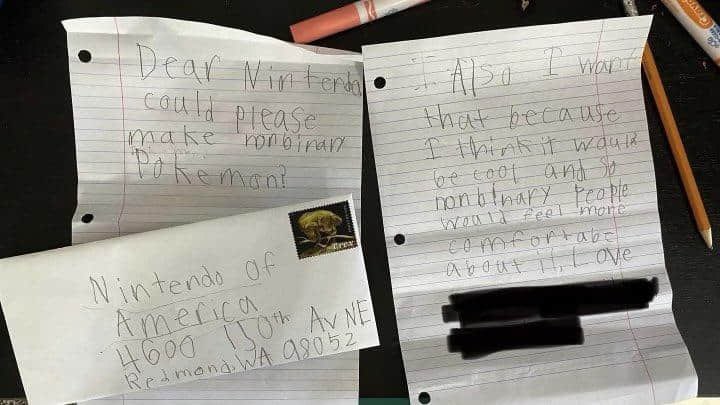 Dear Nintendo
could please
make nonbinary
Pokemon?
Also I want
that because
I think it would
be cool and so
nonbinary people
would feel more
comfortabe
about it, Love
T.rex
Nintendo of
America
4600 150th Av NE
Redmond, WA 98052